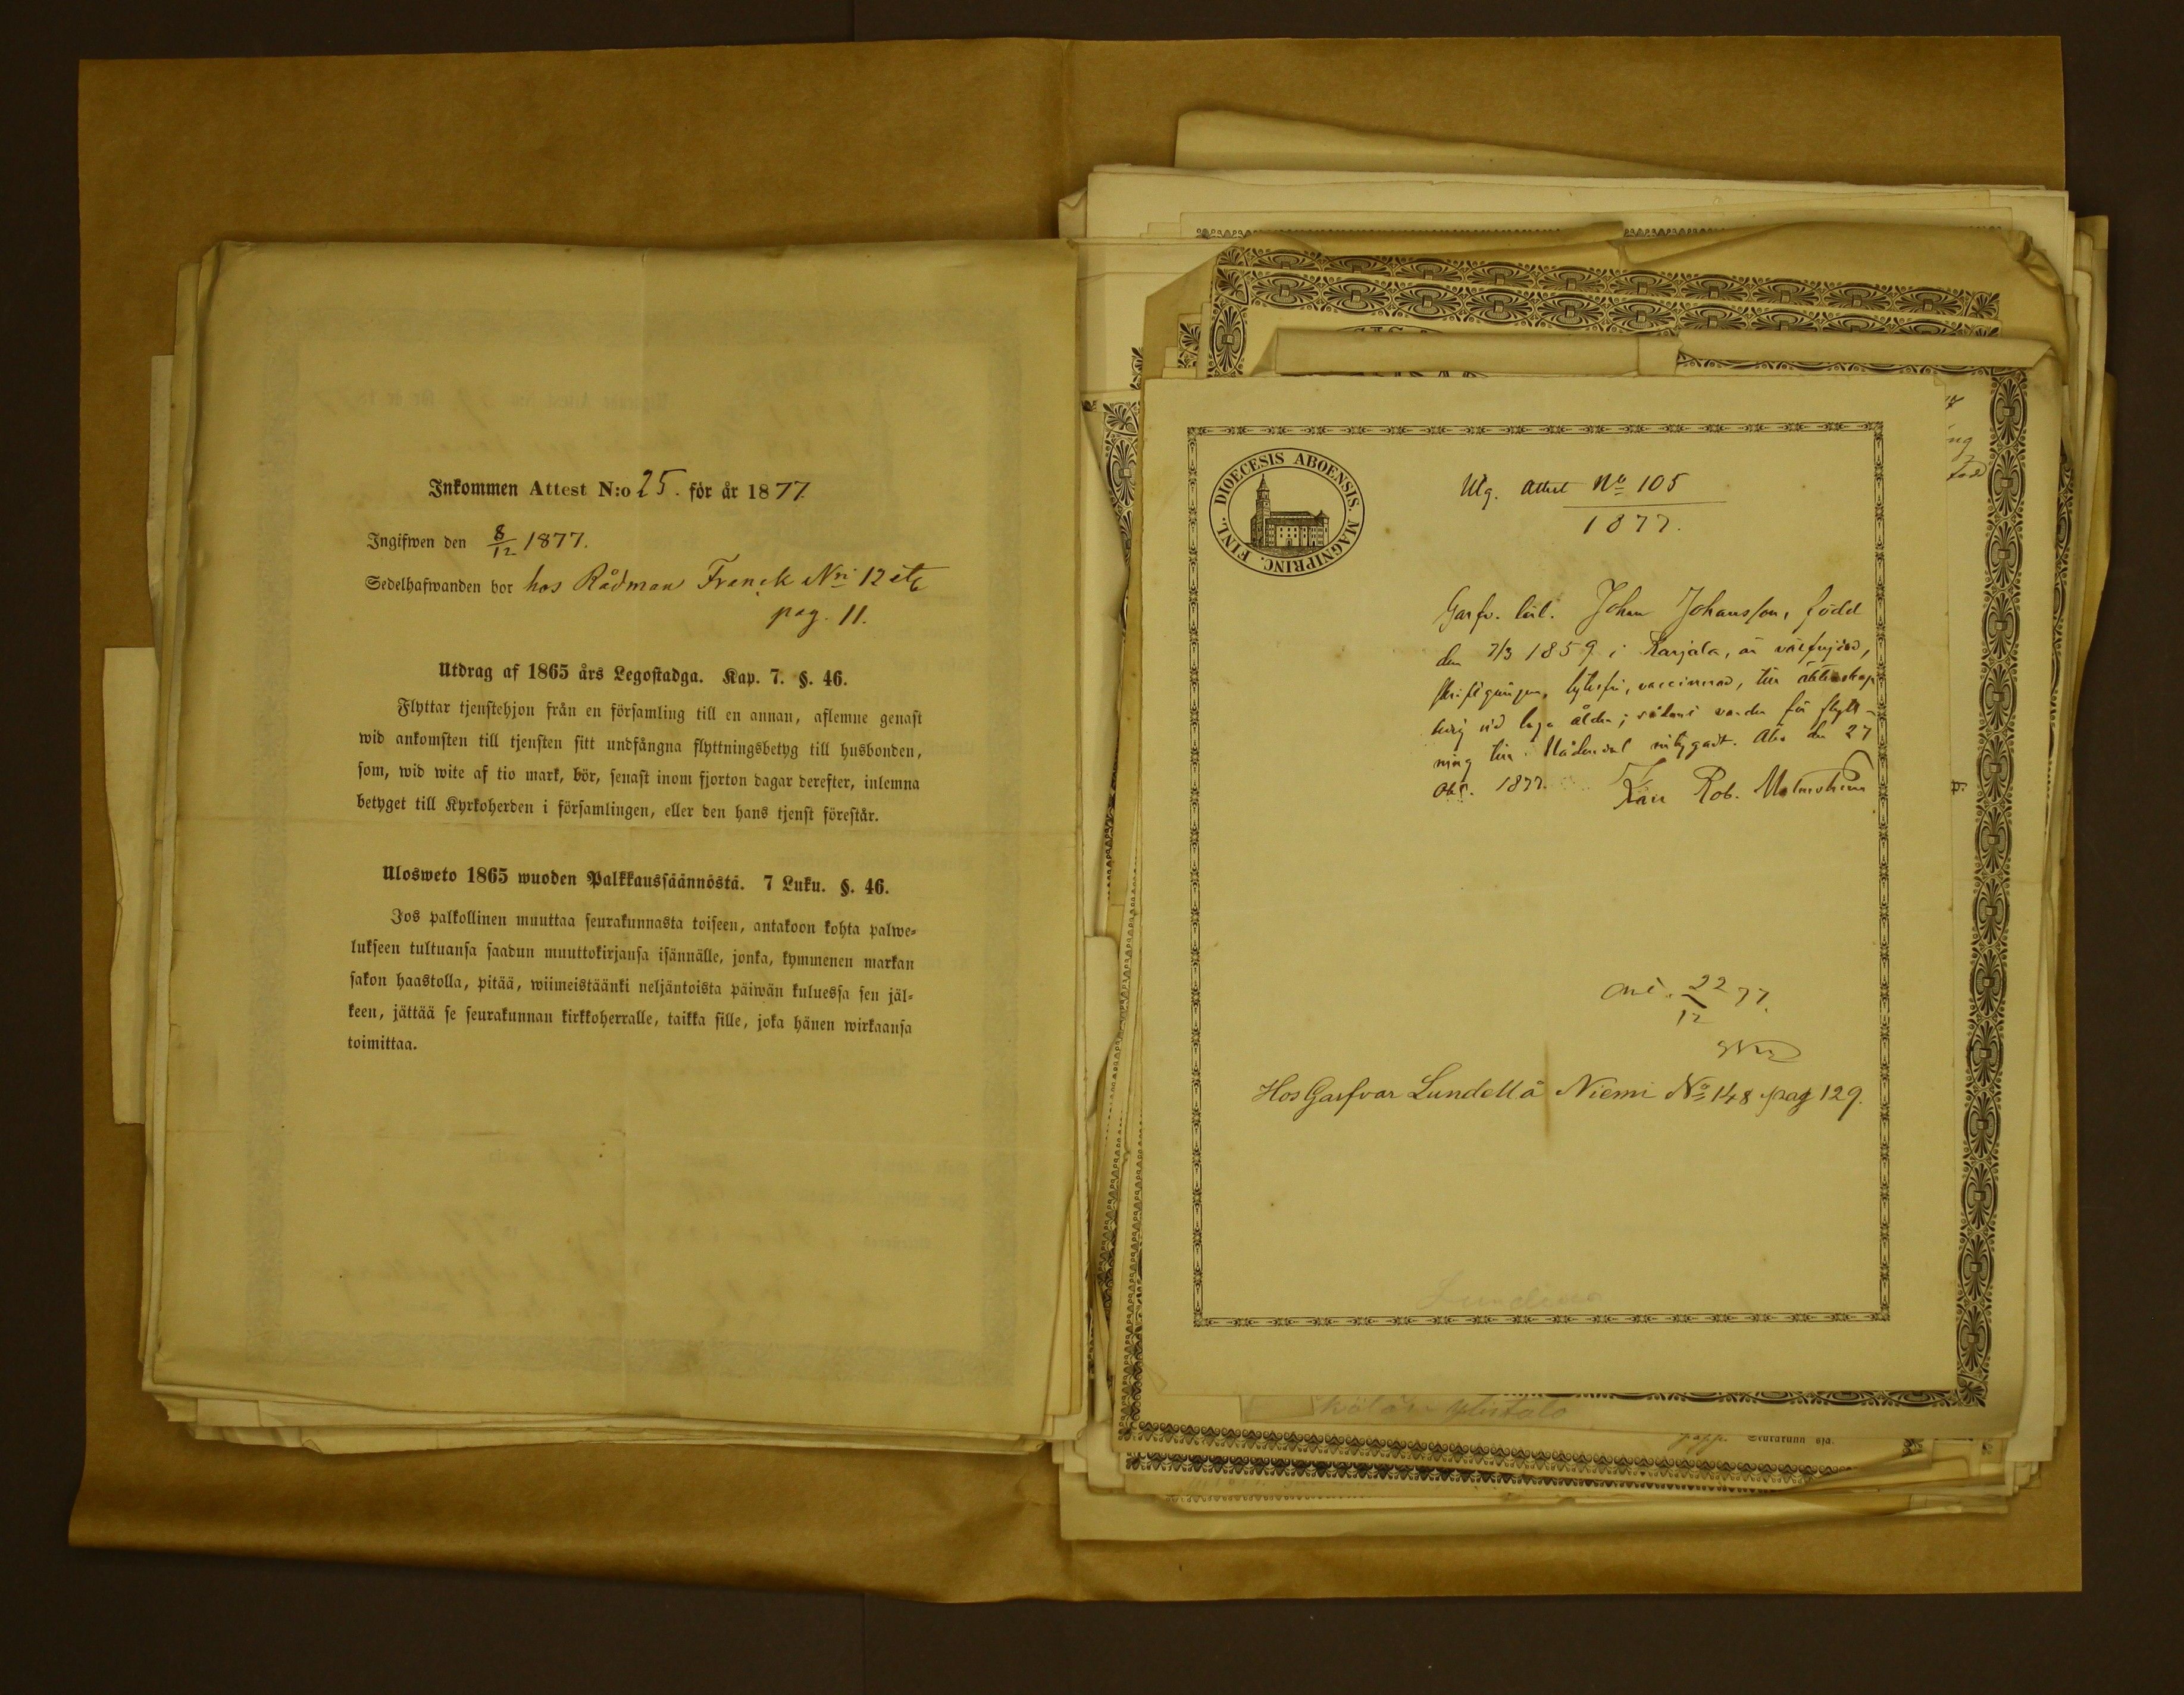 Inkommen Attest N:o 25. för år 1877
Ingifwen den 8/12 1877.
Sedelhafwanden bor hos Rådman Franck Nri 12 etc
pag. 11.
Utdrag af 1865 års Legostadga. Kap. 7. §. 46.
Flyttar tjenstehjon från en församling till en annan, aflemne genast
wid ankomsten till tjensten sitt undfångna flyttningsbetyg till husbonden,
som, wid wite af tio mark, bör, senast inom fjorton dagar derefter, inlemna
betyget till Kyrkoherden i församlingen, eller den hans tjenst förestår.
Ulosweto 1865 wuoden Palkkaussäännöstä. 7 Luku. §. 46.
Jos palkollinen muuttaa seurakunnasta toiseen, antakoon kohta palwe=
lukseen tultuansa saadun muuttokirjansa isännälle, jonka, kymmenen markan
sakon haastolla, pitää, wiimeistäänki neljäntoista päiwän kuluessa sen jäl=
keen, jättää se seurakunnan kirkkoherralle, taikka sille, joka hänen wirkaansa
toimittaa.
FINL. DIOECESIS ABOENSIS. MAGNIPRINC.
Utg. Attest No 105
1877.
Garfv. lärl. Johan Johansson, född
den 7/3 1859 i Karjala, är välfrejdad,
skriftgången, lytesfri, vaccinerad, till äktenskap
ledig vid laga ålder; sådant varder för flytt-
ning till Nådendal intygadt. Åbo den 27
Obr. 1877. Karl Rob. Malmström
Anl. 22/12 77.
Hos Garfvar Lundell å Niemi No 148 pag 129.